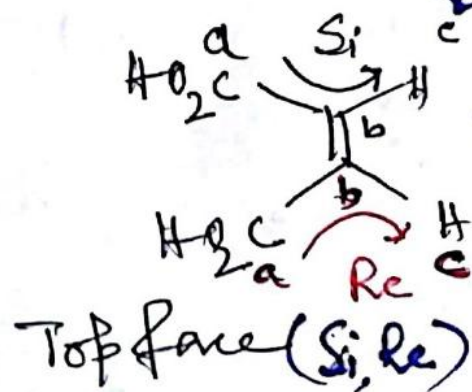 c
a Si
HO2C H
b
b
HO2C H
a c
Re
Top face (Si, Re)